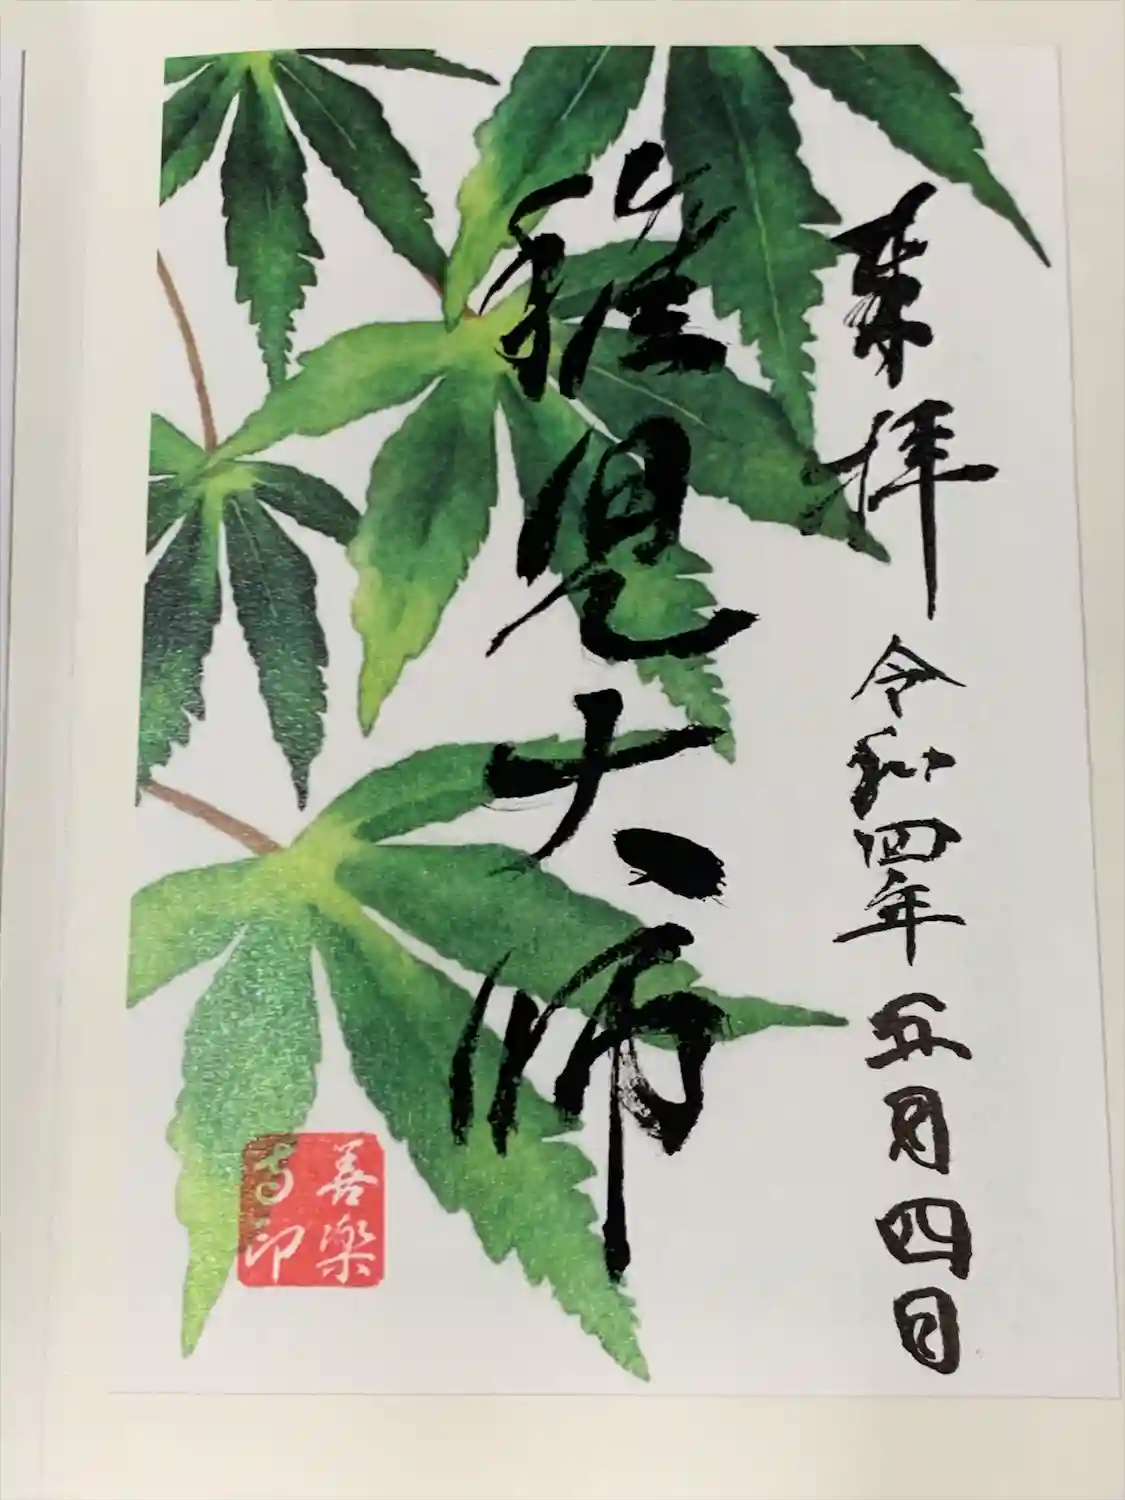 来拝 令和四年 五月四日
稚児大師
善楽
寺印